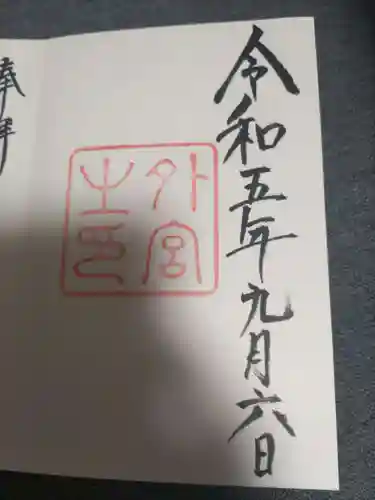 令和五年九月六日
外宮之印
奉拝